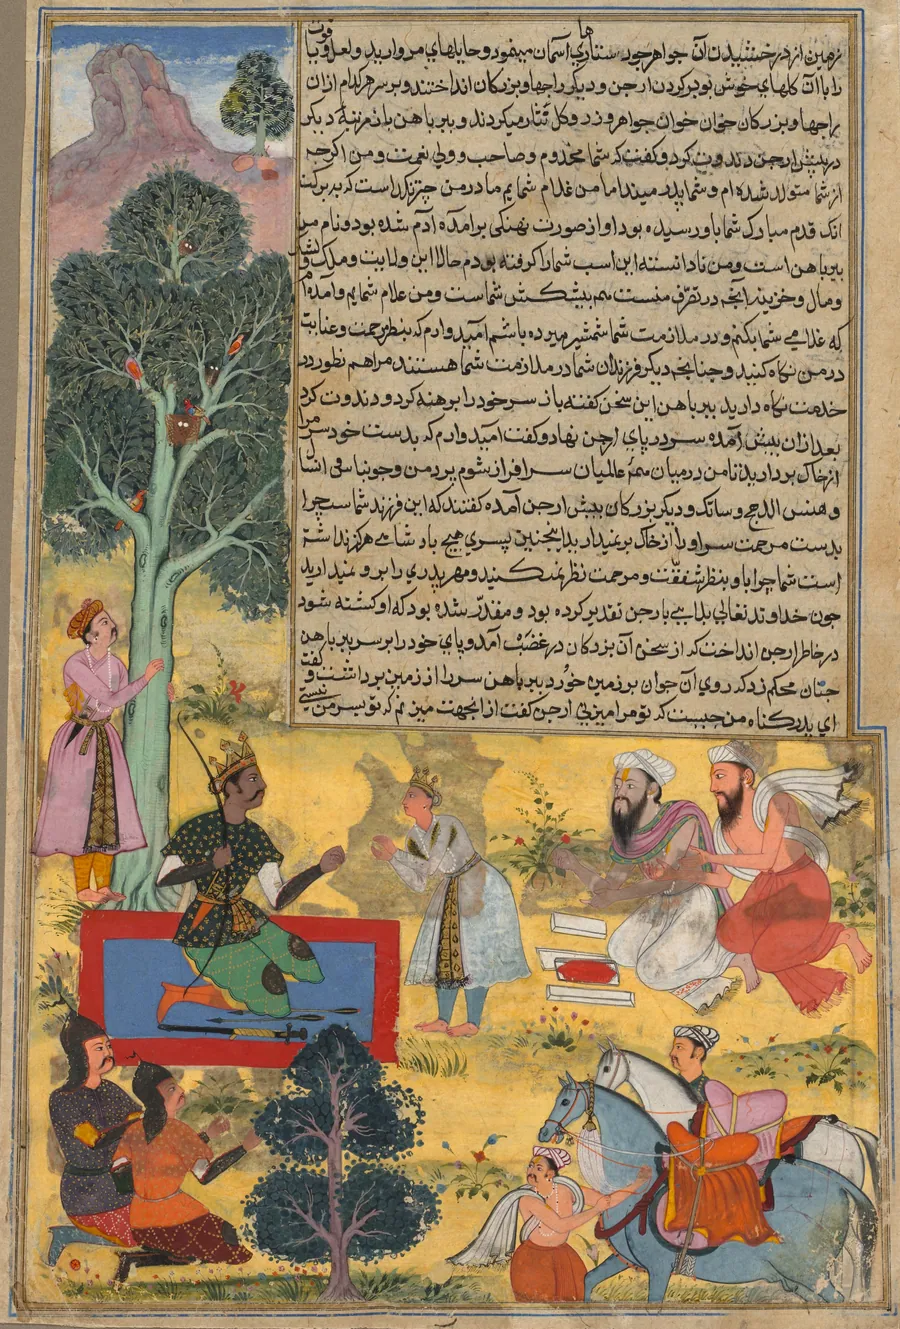 زمین از درخشیدن آن جواهر چون ستارهای آسمان مینمود و حمایلهای مروارید و لعل و یاقوت
را با آن گلهای خوش بو بر گردن ارجن و دیگر راجها و بزرگان انداختند و بر سر هر کدام ازان
راجها و بزرگان خوان خوان جواهر و زر و گل نثار میکردند و ببرباهن باز مرتبه دیگر
در پیش ارجن دندوت کرد و گفت که شما مخدوم و صاحب و ولی نعمت و من اگرچه
از شما متولد شده ام و شما پدر میند اما من غلام شمایم مادر من چترنگدا است که ببرکت
انک قدم مبارک شما باو رسیده بود او از صورت نهنگی برامده آدم شده بود و نام من
ببرباهن است و من نادانسته این اسب شما را گرفته بودم حالا این ولایت و ملک و لشکر
و مال و خزینه آنچه در تصرف منست همه پیشکش شماست و من غلام شمایم و آمده ام
که غلامی شما بکنم و در ملازمت شما شمشیر میزده باشم امیدوارم که بنظر مرحمت و عنایت
در من نگاه کنید و چنانچه دیگر فرزندان شما در ملازمت شما هستند مرا هم بطور در
خدمت نگاه دارید ببرباهن این سخن گفته باز سر خود را برهنه کرد و دندوت کرد
بعد ازان پیش آمده سر در پای ارجن نهاد و گفت امیدوارم که بدست خود سر مرا
از خاک بردارید تا من درمیان همه عالمیان سرافراز شوم پردمن و جوبناسی انسال
و هنس الدج و ساتک و دیگر بزرگان پیش ارجن آمده گفتند که این فرزند شماست چرا
بدست مرحمت سر او را از خاک بر نمیدارید اینچنین پسری هیچ بادشاهی هرگز نداشته
است شما چرا باو بنظر شفقت و مرحمت نظر نمیکنید و مهر پدری را برو نمیدارید
چون خداوند تعالی بلاهی بارجن تقدیر کرده بود و مقدر شده بود که او کشته شود
در خاطر ارجن انداخت که از سخن آن بزرگان در غضب آمد و پای خود را بر سر ببرباهن
چنان محکم زد که روی آن جوان بر زمین خورد ببرباهن سر را از زمین برداشت و گفت
ای پدر گناه من چیست که تو مرا میزنی ارجن گفت ازانجهت میزنم که تو پسر من نیستی